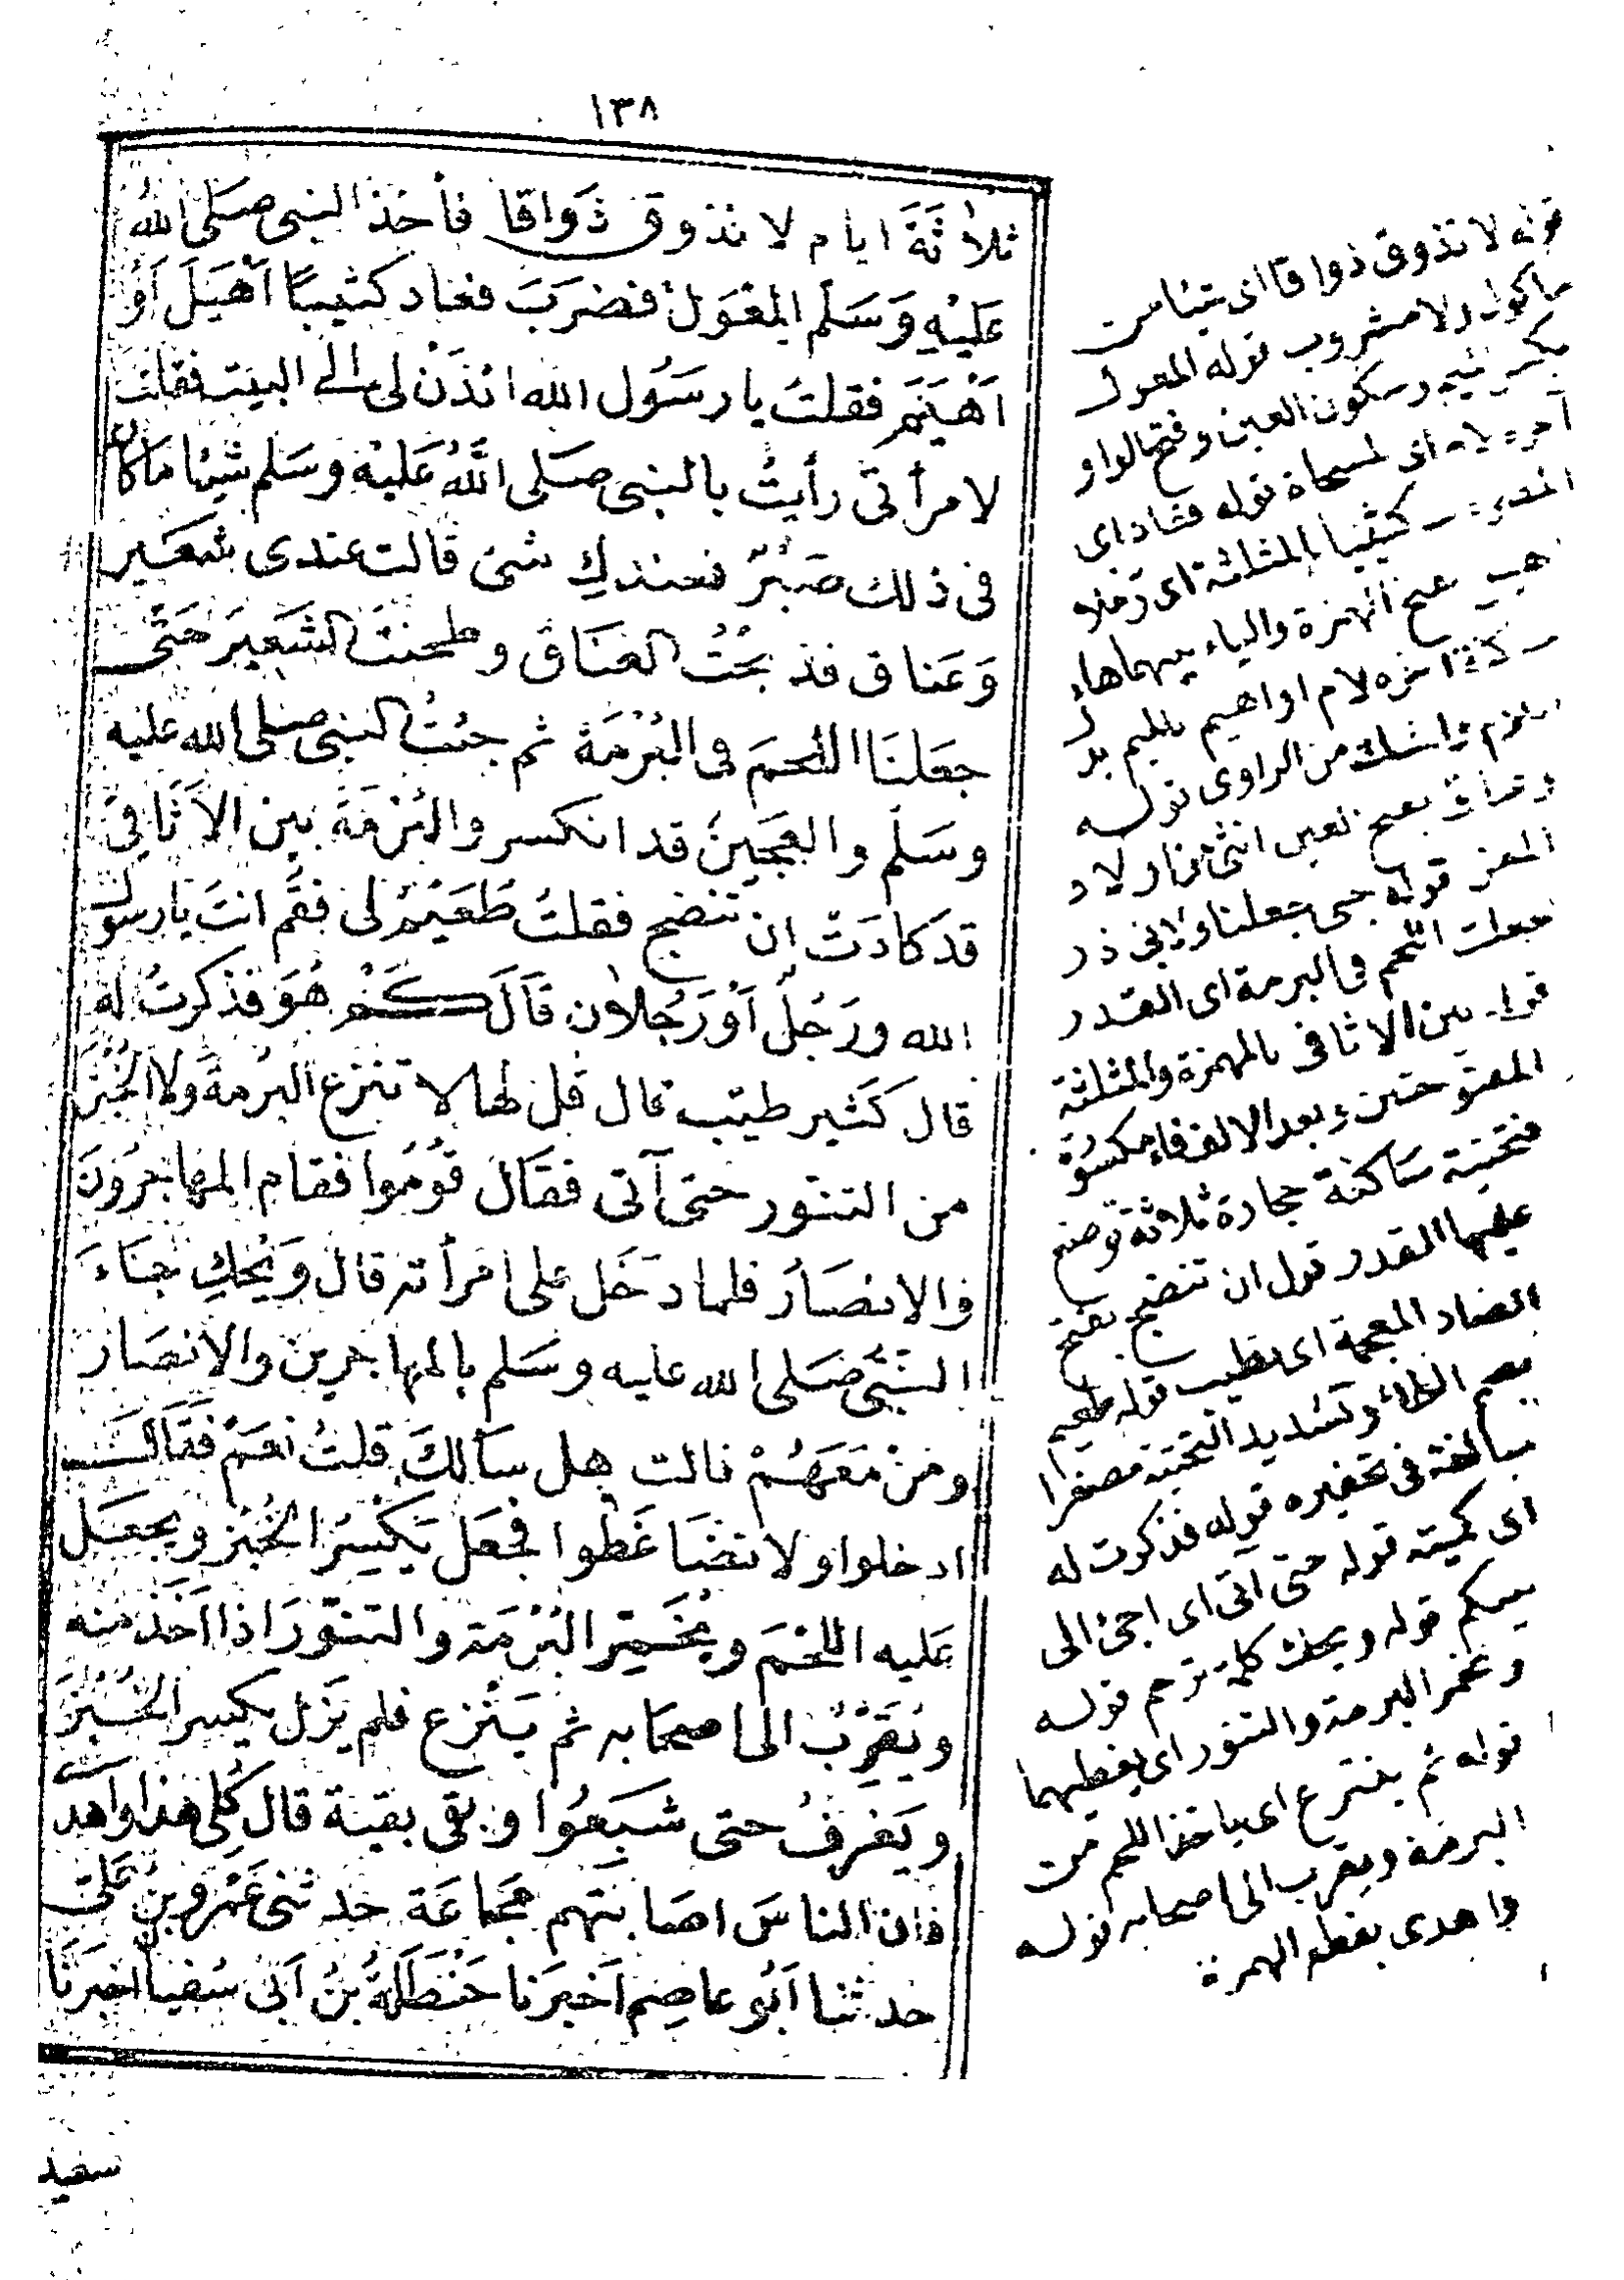 ١٣٨
ثلاثَةَ ايام لا نذوق ذَوَاقا فأخذ النبى صَلى اللهُ
عَليْهِ وَسَلم المِعْوَلَ فضرَبَ فعاد كثيبًا اَهْيَلَ اَوْ
اَهْيَمَ فقلتُ يا رسَوُل الله ائذَنْ لى الى البيت فقلت
لامرأتى رأيتُ بالنبى صَلى اللهُ عَليْه وسَلم شيئا مَا كان
فى ذلك صَبْرٌ فعندكِ شئ قالت عندى شعَير
وَعَناق فذبحْتُ العنَاقَ وطحنَت الشَعِيرَ حَتّى
جعَلنَا اللحمَ فى البُرْمَة ثم جئتُ النبى صلى الله عليه
وسَلم والعجَينُ قد انكسر والبُرْمَةُ بين الاَثَافِىّ
قد كادَتْ ان تَنضج فقلتُ طُعَيِّمٌ لى فقُم انتَ يا رسول
الله ورَجُلٌ اَوْ رَجُلان قَالَ كَمْ هُوَ فذكرتُ له
قال كَثير طيّب قال قل لها لا تنزع البُرمةَ ولا الخُبْزَ
من التنّور حتى آتى فقَال قوُموا فقام المهاجرُونَ
والانصَارُ فلما دَخَل على امرأته قال وَيْحَكِ جَاءَ
النّبَّى صَلى الله عليه وسَلم بالمهاجرين والاَنصَار
ومَنْ مَعَهُمْ قالت هل سَألكَ قلتُ نعَمْ فقَالَ
ادخلوا ولا تضَاغَطوا فجعَل يَكْسِرُ الخبْز ويجعَل
عَليه اللحْمَ ويُخَمِّر البُرْمَة والتنّورَ اذا اَخَذ منه
ويُقَرِّبُ الى اصحَابه ثم يَنْزع فلم يَزَل يكسر الخُبْزَ
ويَغرفُ حتى شَبِعُوا وبقى بقية قال كُلِى هذا واَهدى
فان الناسَ اصَابتهم مَجَاعَة حدثنى عَمْرو بنُ عَلىّ
حدثنا اَبُو عاصِم اَخبرَنا حَنْظَلَةُ بنُ اَبى سُفيان اخبرَنا
سعيد
قوله لا نذوق ذواقا اى شيئا من
ماكول ولا مشروب قوله المعول
بكسر الميم وسكون العين وفتح الواو
آخره لام اى المسحاة قوله فعاد اى
كثيبا بالمثلثة اى رملا
الهمزة والياء بينهما هاء
آخره لام او اهيم بالميم بدل
اللام والشك من الراوى قوله
وعناق بفتح العين انثى من اولاد
المعز قوله حتى جعلنا ولابى ذر
فجعلت اللحم فى البرمة اى القدر
قوله بين الاثافى بالهمزة والمثلثة
المفتوحتين وبعد الالف فاء مكسورة
فتحتية سَاكنة حجارة ثلاثة توضع
عليها القدر قوله ان تنضج بفتح
الضاد المعجمة اى تطيب قوله طعيم
بضم الطاء وتشديد التحتية مصغرا
مبالغة فى تحقيره قوله فذكرت له
اى كميته قوله حتى آتى اى اجئ الى
بيتكم قوله ويحك كلمة ترحم قوله
ويخمر البرمة والتنور اى يغطيهما
قوله ثم ينزع اى ياخذ اللحم من
البرمة ويقرب الى اصحابه قوله
واهدى بقطع الهمزة